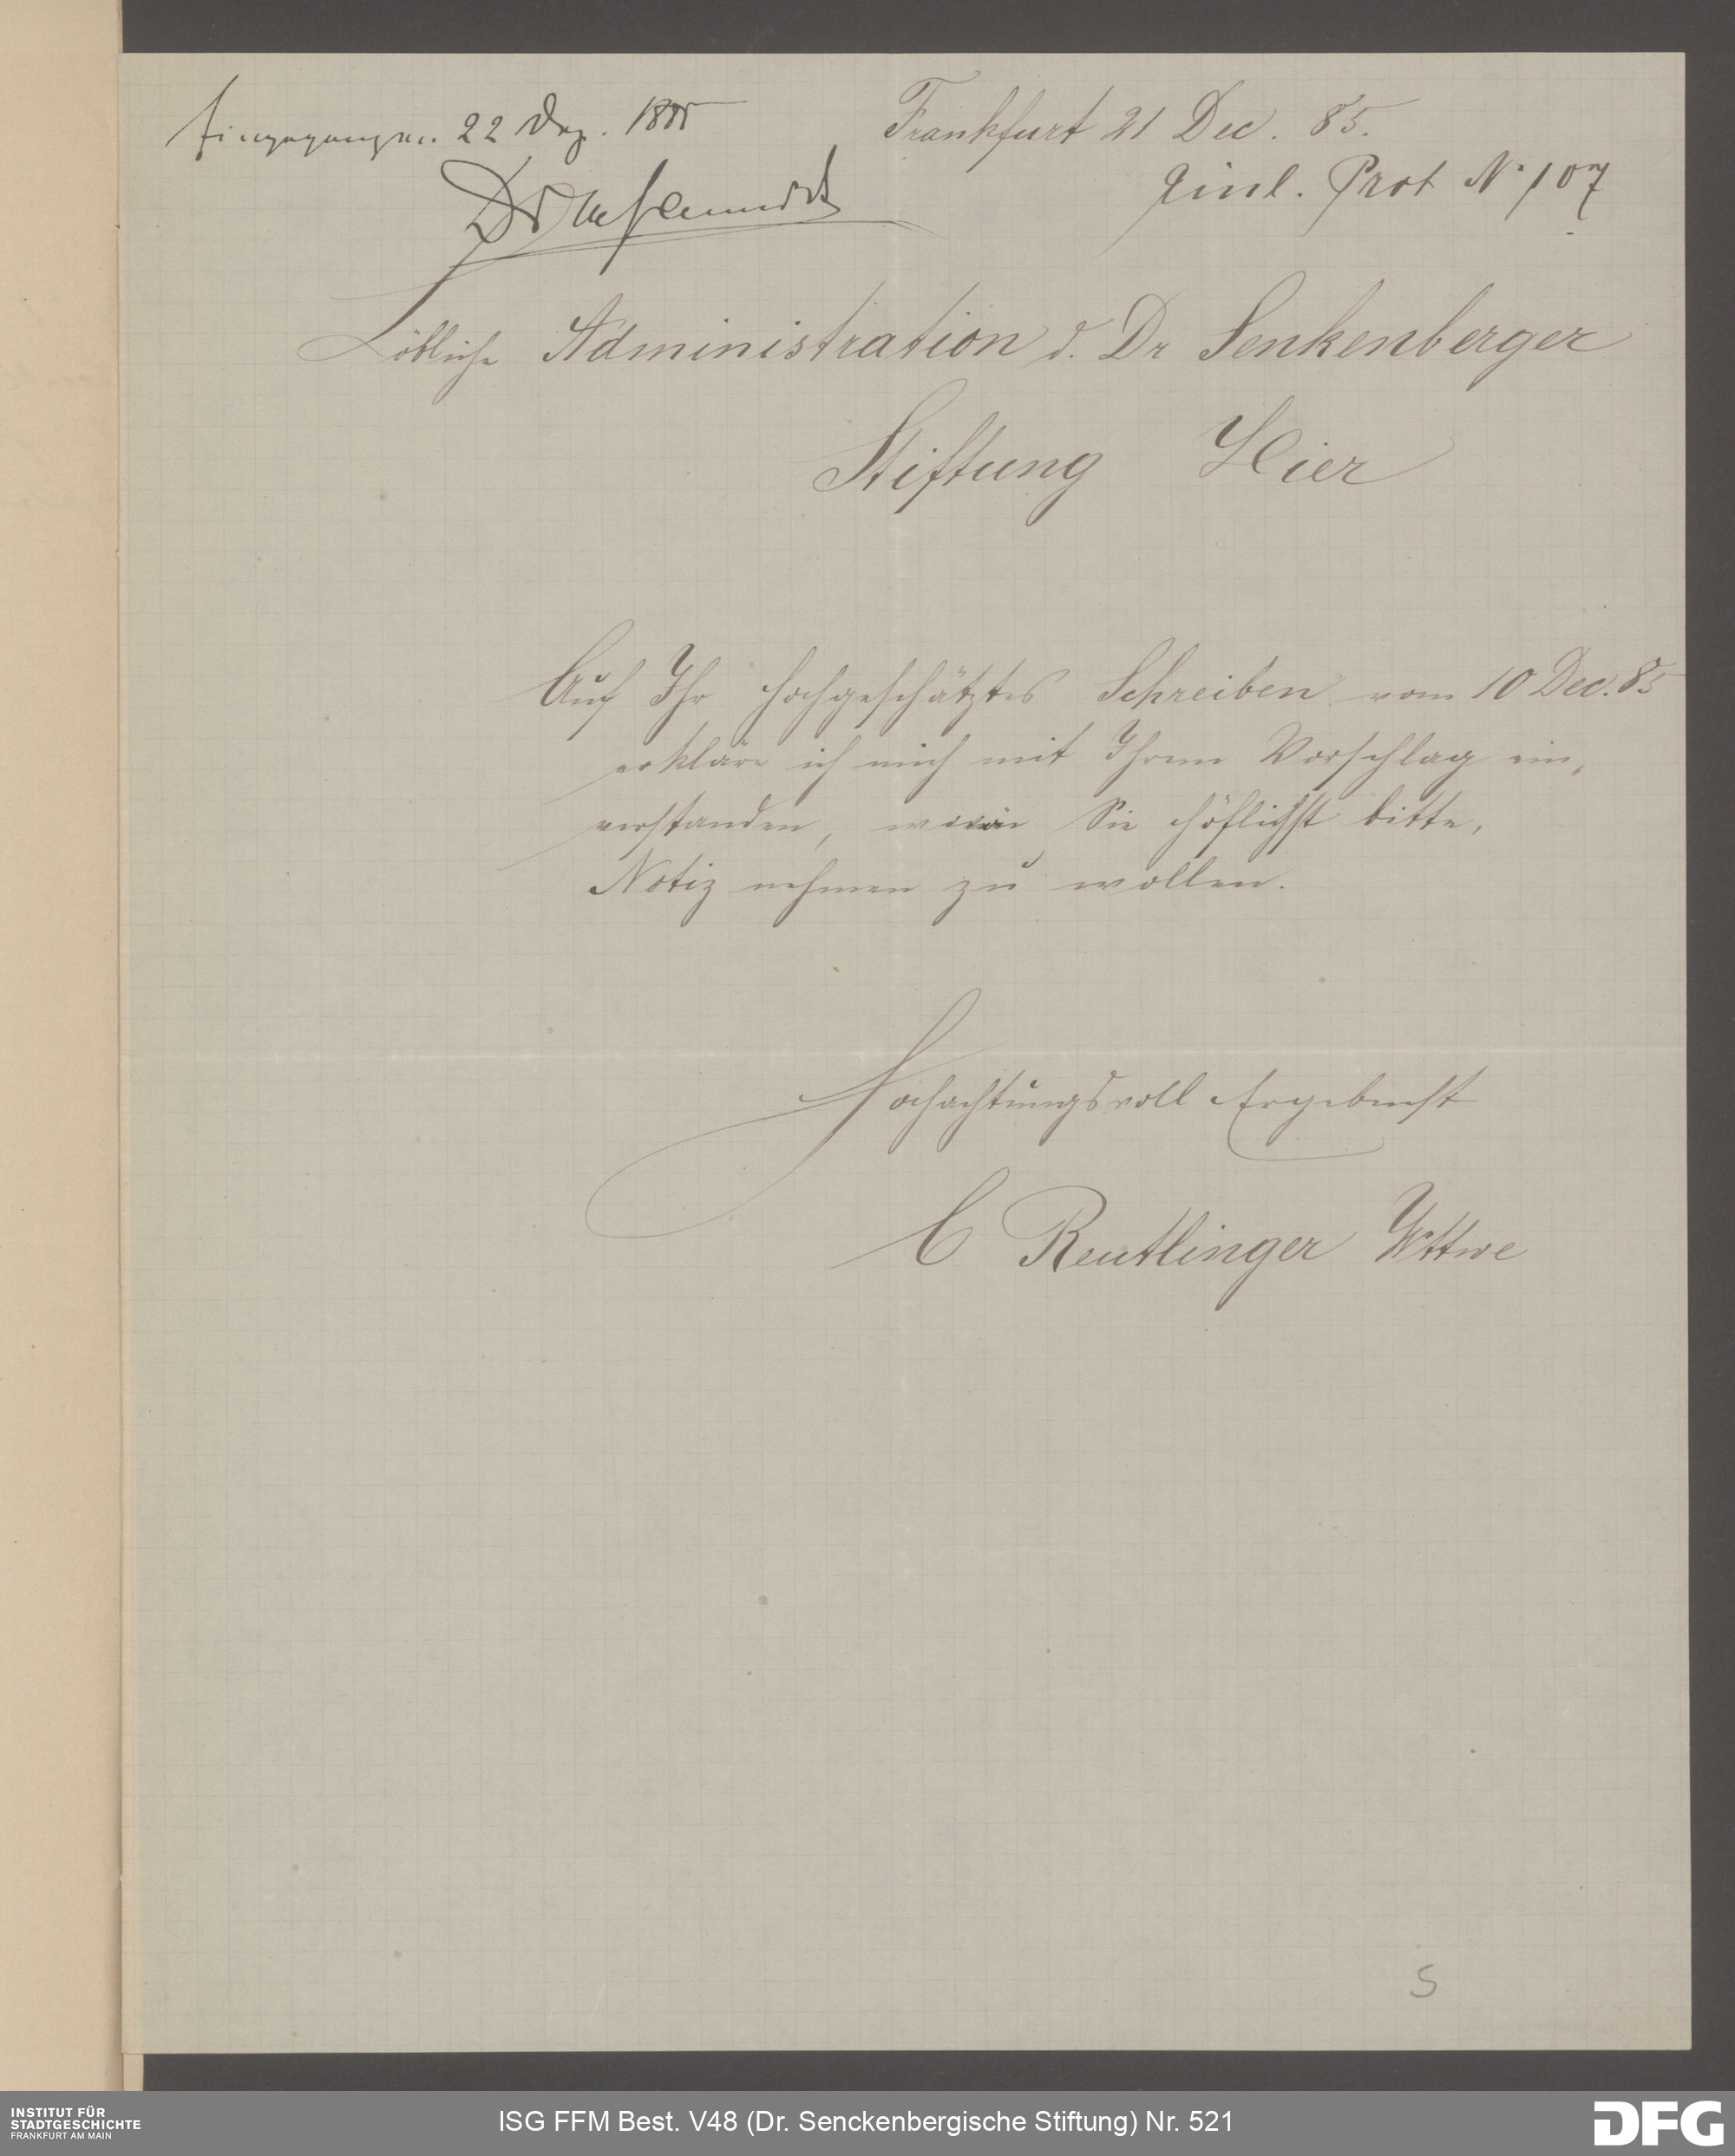 Eingegangen 22 Dez. 1885
Frankfurt 21 Dec. 85.
Einl. Prot Nº 107
Dr
Löbliche Administration d. Dr Senkenberger
Stiftung Hier
Auf Ihr hochgeschätztes Schreiben vom 10 Dec. 85
erkläre ich mich mit Ihrem Vorschlag ein„
verstanden, Sie höflichst bitte,
Notiz nehmen zu wollen.
Hochachtungsvoll Ergebenst
C Reutlinger Wttwe
5
INSTITUT FÜR
STADTGESCHICHTE
FRANKFURT AM MAIN
ISG FFM Best. V48 (Dr. Senckenbergische Stiftung) Nr. 521
DFG